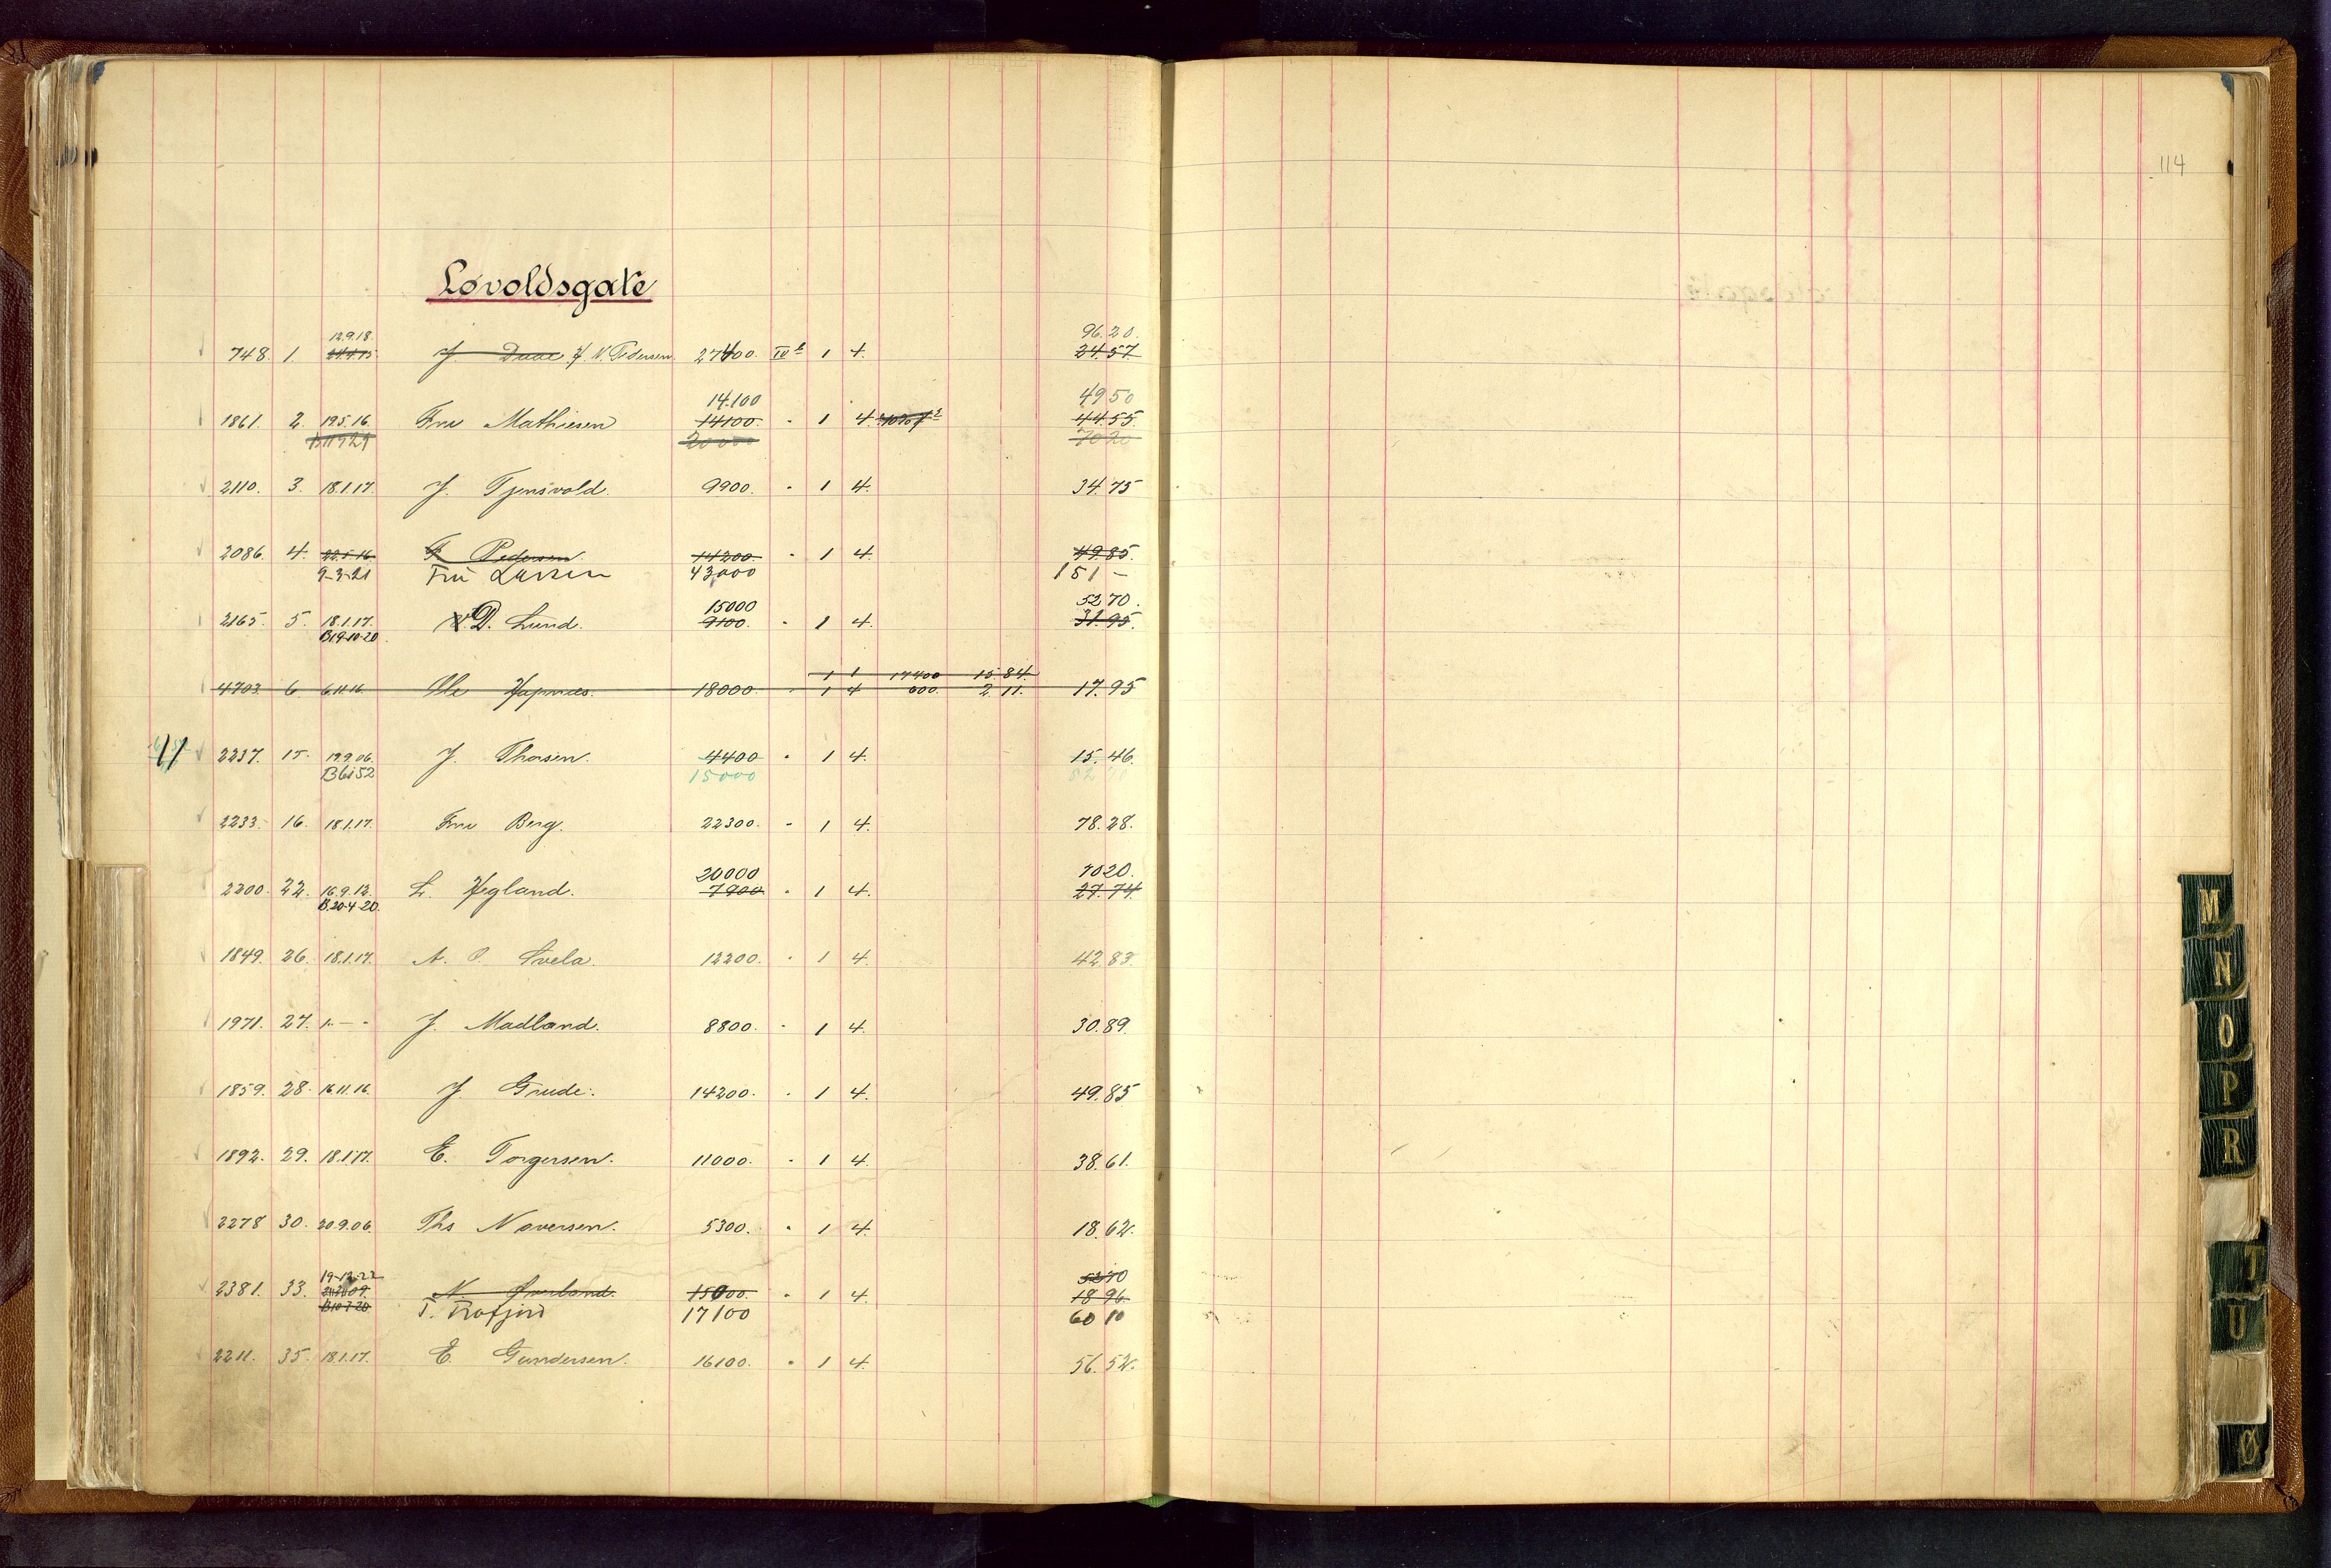 114
Løvoldsgate
12.9.18 96.20.
748. 1. J Daae J. N. Pedersen 27400. IV 1 4. 24.57.
14.100 49 50
1861. 2. 19.5.16. Fru Mathiesen 14100. " 1 4. 44.55.
20000 70 20
2110. 3. 18.1.17. J. Tjensvold. 9900. " 1 4. 34.75
2086. 4. 22.5.16. Pedersen 14200. " 1 4. 49.85.
9-3-21 Fru Larsen 43,000 151 —
15000 52 70.
2165. 5. 18.1.17. D. Lund. 9100. " 1 4. 31.95.
B19-10-20.
1 1 17400 15.84.
4703. 6 6.11.16. Ole 18000. " 1 4 600. 2.11. 17.95
11 2237. 15. 19.9.06. J. Thorsen. 4400 " 1 4. 15.46.
B6/52 15000
2233. 16. 18.1.17. Fru Berg. 22300. " 1 4. 78.28.
20000 70 20.
2200. 22. 16.9.12. L. Hegland. 7900 " 1 4. 27.74.
B.20-4-20.
1849. 26. 18.1.17. A. O. Svela. 12200. " 1 4. 42.83.
1971. 27. " — " J. Madland. 8800. " 1 4. 30.89.
1859. 28. 16.11.16. J Grude. 14200. " 1 4. 49.85
1892. 29. 18.1.17. E. Torgersen. 11000. " 1 4. 38.61.
2278 30. 20.9.06. Ths Naversen. 5300. " 1 4. 18.62.
19-12-22 52 70
2381. 33. N. 15000. " 1 4. 18 96.
B10-7-20 T. Trofjord 17100 60 10
2211. 35. 18.1.17. E. Gundersen. 16100. " 1 4. 56.52.
M
N
O
P
R
T
U
Ø